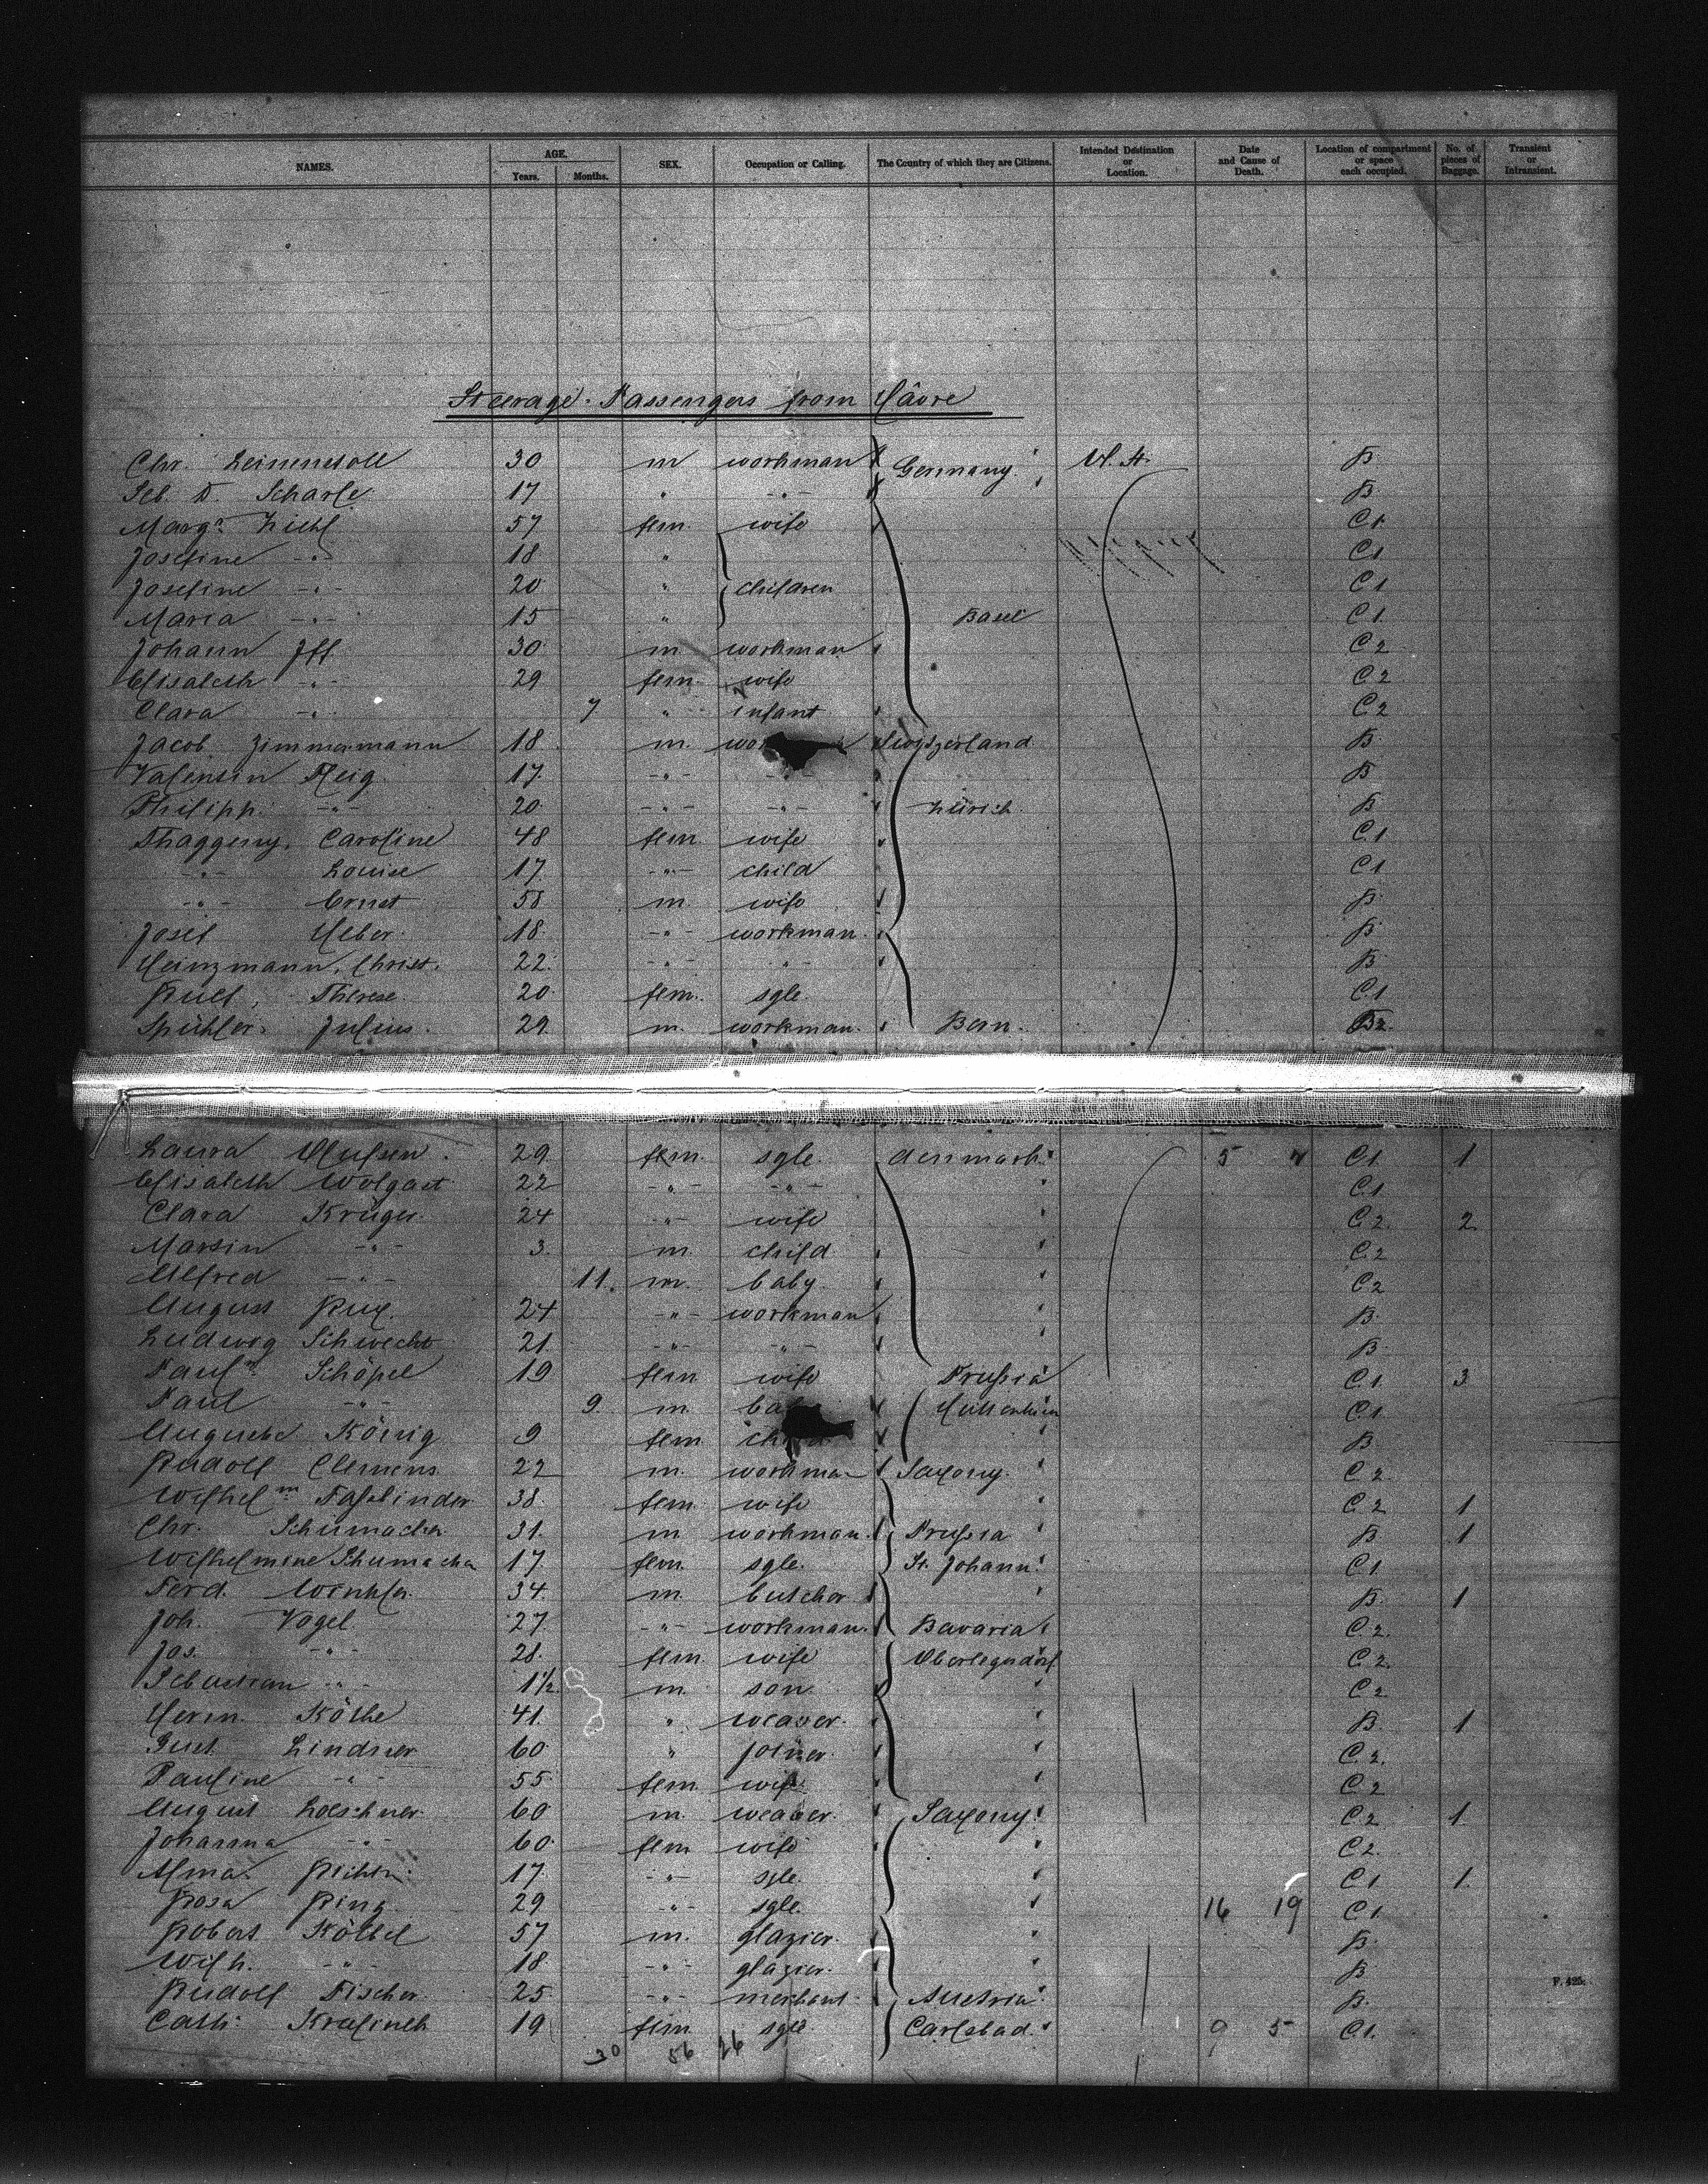 NAMES. AGE. Years. Months. SEX. Occupation or Calling. The Country of which they are Citizens. Intended Destination or Location. Date and Cause of Death. Location of compartment or space each occupied. No. of pieces of Baggage. Transient or Intransient.
Steerage-Passengers from Hâvre
Chr. 30 m workman Germany B
Seb. D. 17 " -"- B
Marg. 57 fem. wife C1
Josefine -"- 18 " C1
Josefine -"- 20 " children C1
Maria -"- 15 " Basel C1
Johann Iff 30 m. workman C2
Elisabeth -"- 29 fem. wife C2
Clara -"- 7 " infant C2
Jacob Zimmermann 18 m. Switzerland B
Valentin 17 -"- -"- B
Philipp -"- 20 -"- -"- Zürich B
Caroline 48 fem. wife C1
-"- Louise 17 -"- child C1
-"- Ernst 58 m. wife B
Josef 18 -"- workman B
Heinzmann, Christ. 22 -"- " B
Therese 20 fem. sgle. C1
Spühler, Julius 29 m. workman. Bern.
Laura 29 fem. sgle. denmark 5 C1 1
Elisabeth Wolgast 22 -"- -"- C1
Clara Krüger 24 -"- wife C2 2
Martin -"- 3 m. child C2
Alfred -"- 11 m. baby C2
August 24 -"- workman B
Ludwig Schwecht 21 -"- -"- B
Schöpel 19 fem wife Prussia C1 3
Paul -"- 9 m. C1
Auguste König 9 fem B
Rudolf Clemens 22 m. workman Saxony C2
38 fem wife C2 1
Chr. Schumacher 31 m workman. Prussia B 1
Wilhelmine Schumacher 17 fem. sgle. St. Johann C1
Ferd. Winkler 34 m. butcher B 1
Joh. Vogel 27 -"- workman. Bavaria C2
Jos. -"- 28 fem wife C2
Sebastian -"- 1½ m. son C2
Herm. Köthe 41 " weaver. B 1
Gust. Lindner 60 " joiner. C2
Pauline -"- 55 fem wife C2
August Loeschner 60 m. weaver. Saxony C2 1
Johanna -"- 60 fem wife C2
Alma Richter 17 -"- sgle. C1 1
Rosa Ring 29 -"- sgle. 16 19 C1
Robert 57 m. glazier. B
Wilh. -"- 18 -"- glazier. B
Rudolf Fischer 25 -"- merchant Austria B
Cath. 19 fem sgle. Carlsbad 9 5 C1
30 56 26
F. 425.